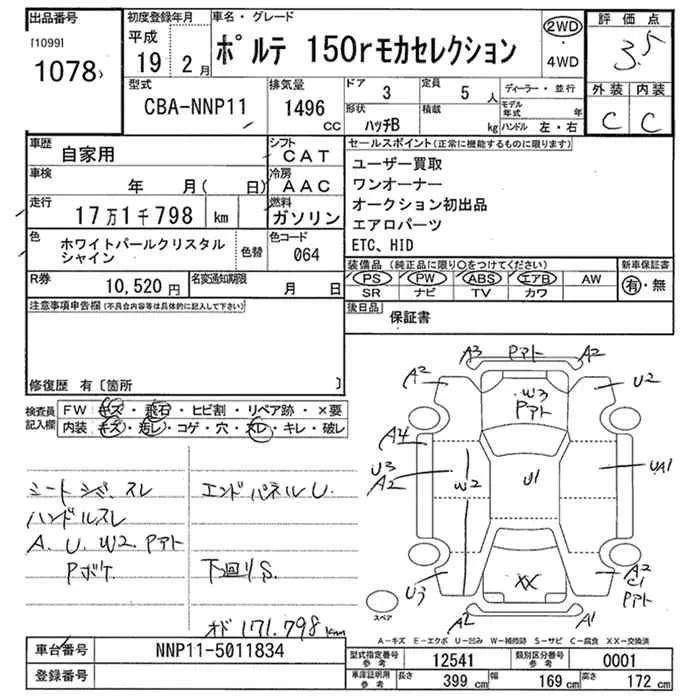 出品番号
[1099]
1078
初度登録年月
平成
19 2 月
車名・グレード
ﾎﾟﾙﾃ 150rモカセレクション
2WD
・
4WD
評価点
3.5
外装 内装
C C
型式
CBA-NNP11
排気量
1496
CC
ドア
3
定員
5 人
形状
ﾊｯﾁB
積載
kg
ディーラー・並行
モデル年式
年
ハンドル 左・右
車歴
自家用
シフト
CAT
車検
年 月( 日)
冷房
AAC
走行
17万1千798 km
燃料
ガソリン
色
ホワイトパールクリスタル
シャイン
色替
色コード
064
R券
10,520 円
名変通知期限
月 日
セールスポイント(正常に機能するものに限ります)
ユーザー買取
ワンオーナー
オークション初出品
エアロパーツ
ETC、HID
装備品 (純正品に限り○をつけてください)
PS PW ABS エアB AW
SR ナビ TV カワ
新車保証書
有・無
後日品
保証書
注意事項申告欄(不具合内容等は具体的に記入して下さい)
修復歴 有〔箇所 〕
検査員
記入欄
FW キズ・飛石・ヒビ割・リペア跡・×要
内装 キズ・汚レ・コゲ・穴・スレ・キレ・破レ
シートシミ、スレ
ハンドルスレ
A.U.W2.Pアト
Pボケ
エンドパネルU.
下回りS.
オド 171.798km
A3 Pアト A2
A2 U2
W3
Pアト
A4
U3
A2
W2
U1
UA1
U3
XX
A2
C1
Pアト
A2 A1
スペア
A-キズ E-エクボ U-凹み W-補修跡 S-サビ C-腐食 XX-交換済
車台番号
NNP11-5011834
登録番号
型式指定番号
参考
12541
類別区分番号
参考
0001
車庫証明用
参考
長さ
399 cm
幅
169 cm
高さ
172 cm